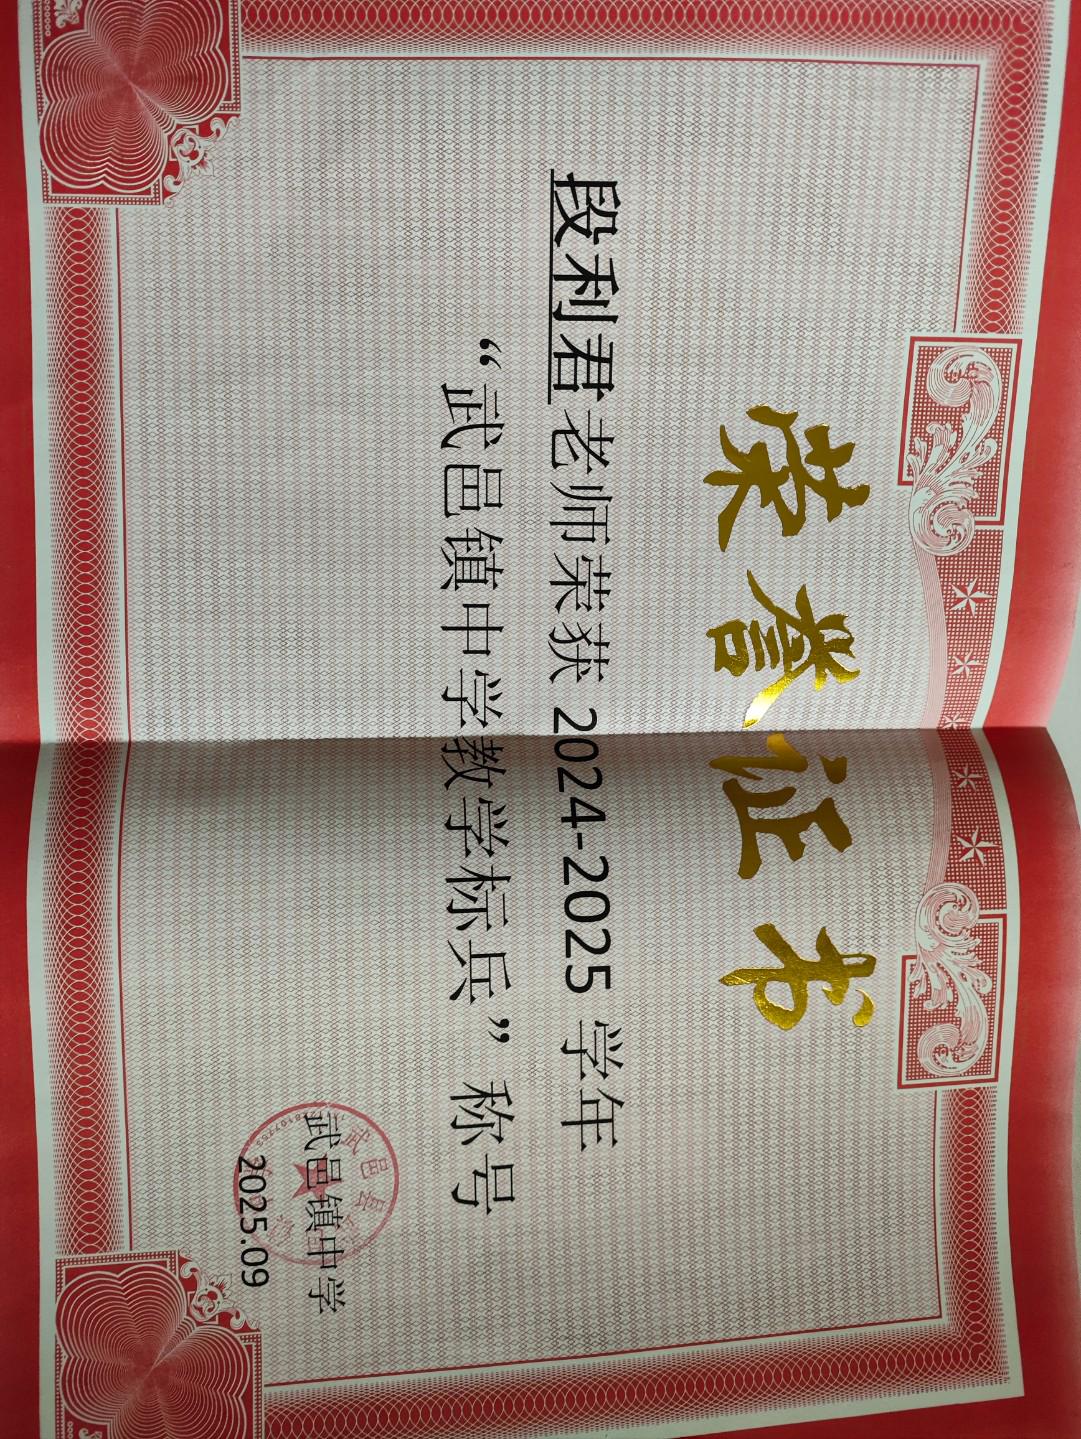 荣誉证书
段利君老师荣获 2024-2025 学年
“武邑镇中学教学标兵”称号
武邑镇中学
2025.09